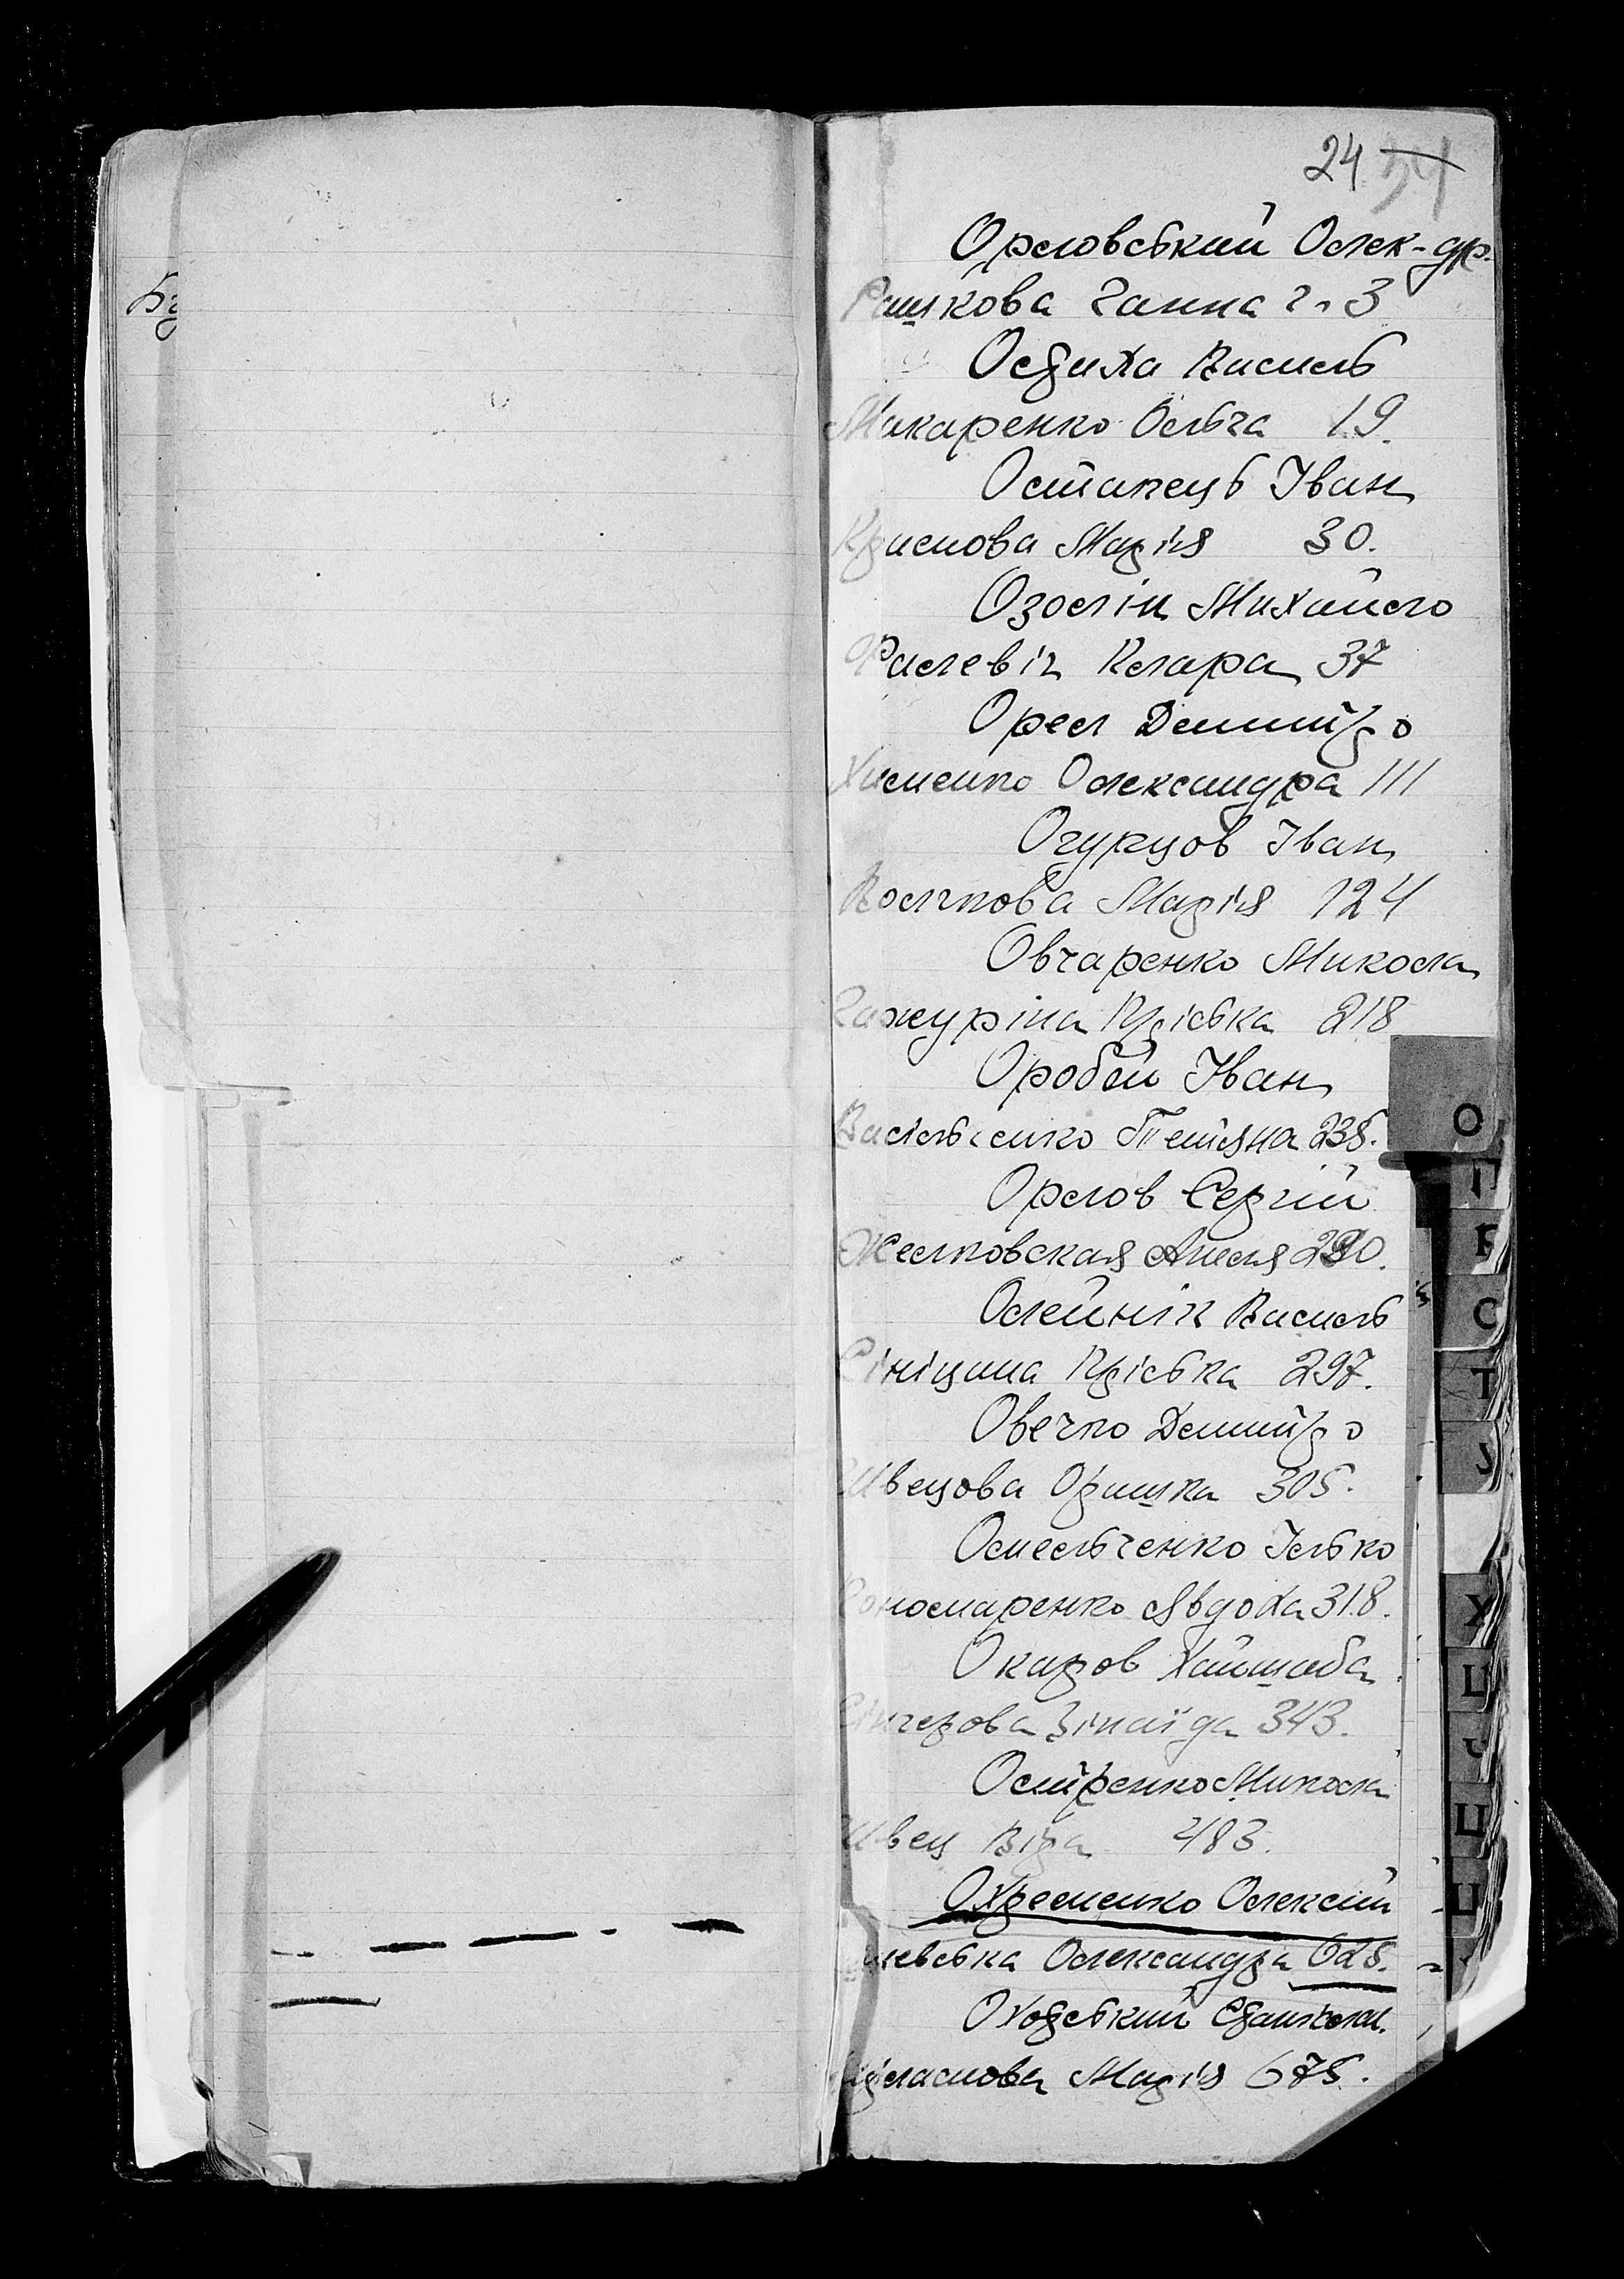 Бу
24 34
Орловський Олек-др.
Рашкова Ганна 2-3
Осьиха Василь
Макаренко Ольга 19.
Остапець Іван
Краснова Марія 30.
Озолін Михайло
Фалевіч Клара 37
Орел Дмитро
Хименко Олександра 111
Огурцов Іван
Волчкова Марія 124
Овчаренко Микола
Гажуріна Пріська 218
Оробей Іван
Васільченко Тетяна 238.
Орлов Сергій
Желтовская Анеля 290.
Олейнік Василь
Сініцина Пріська 297.
Овечко Дмитро
Швецова Оришка 305.
Омельченко Ілько
Пономаренко Явдоха 318.
Окаров Хайшаба
Зінаїда 343.
Остренко Микола
Швец Віра 483.
Охременко Олексій
Олександра 625.
Марія 675.
О
П
Р
С
Т
У
Х
Ц